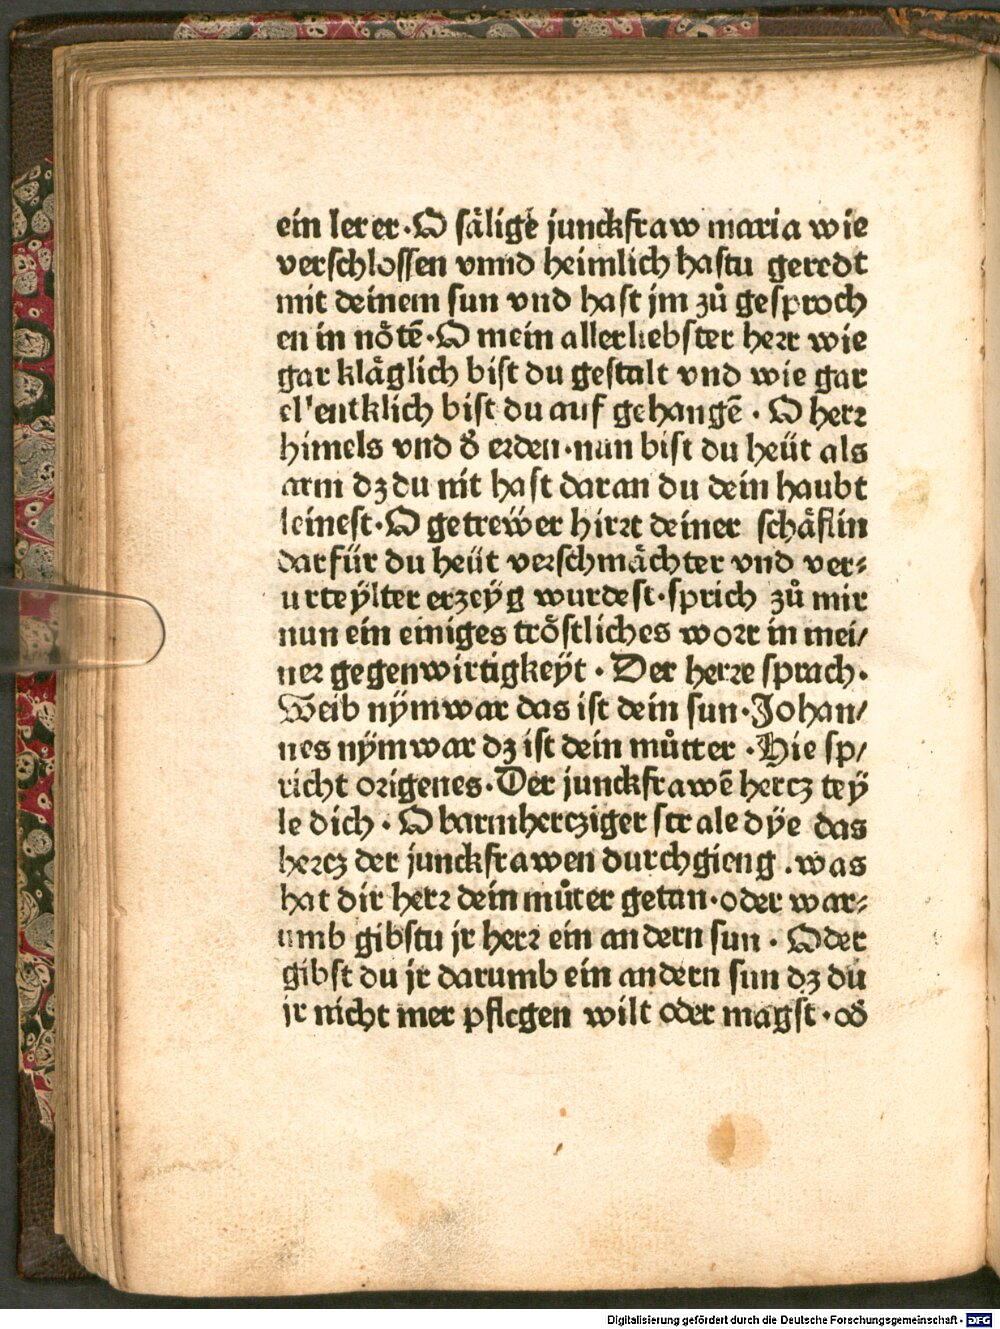 ein lerer·O sälige junckfraw maria wie
verschlossen vnnd heimlich hastu geredt
mit deinem sun vnd hast jm zů gesproch
en in nötē·O mein allerliebster herr wie
gar kläglich bist du gestalt vnd wie gar
ellentklich bist du auf gehangē·O herr
himels vnd d̕ erden·nun bist du heüt als
arm dz du nit hast daran du dein haubt
leinest·O getreẅer hirrt deiner schäflin
darfür du heüt verschmächter vnd ver⸗
urteÿlter erzeÿg wurdest·sprich zů mir
nun ein einiges tröstliches wort in mei/
ner gegenwirtigkeÿt·Der herre sprach·
Weib nÿm war das ist dein sun·Johan/
nes nÿm war dz ist dein můtter·Hie sp/
richt origenes·Der junckfrawē hertz teÿ
le dich·O barmhertziger strale dÿe das
hertz der junckfrawen durchgieng.was
hat dir herr dein můter getan·oder war⸗
umb gibstu jr herr ein andern sun·Oder
gibst du jr darumb ein andern sun dz du
jr nicht mer pflegen wilt oder magst·od̕
Digitalisierung gefördert durch die Deutsche Forschungsgemeinschaft - DFG